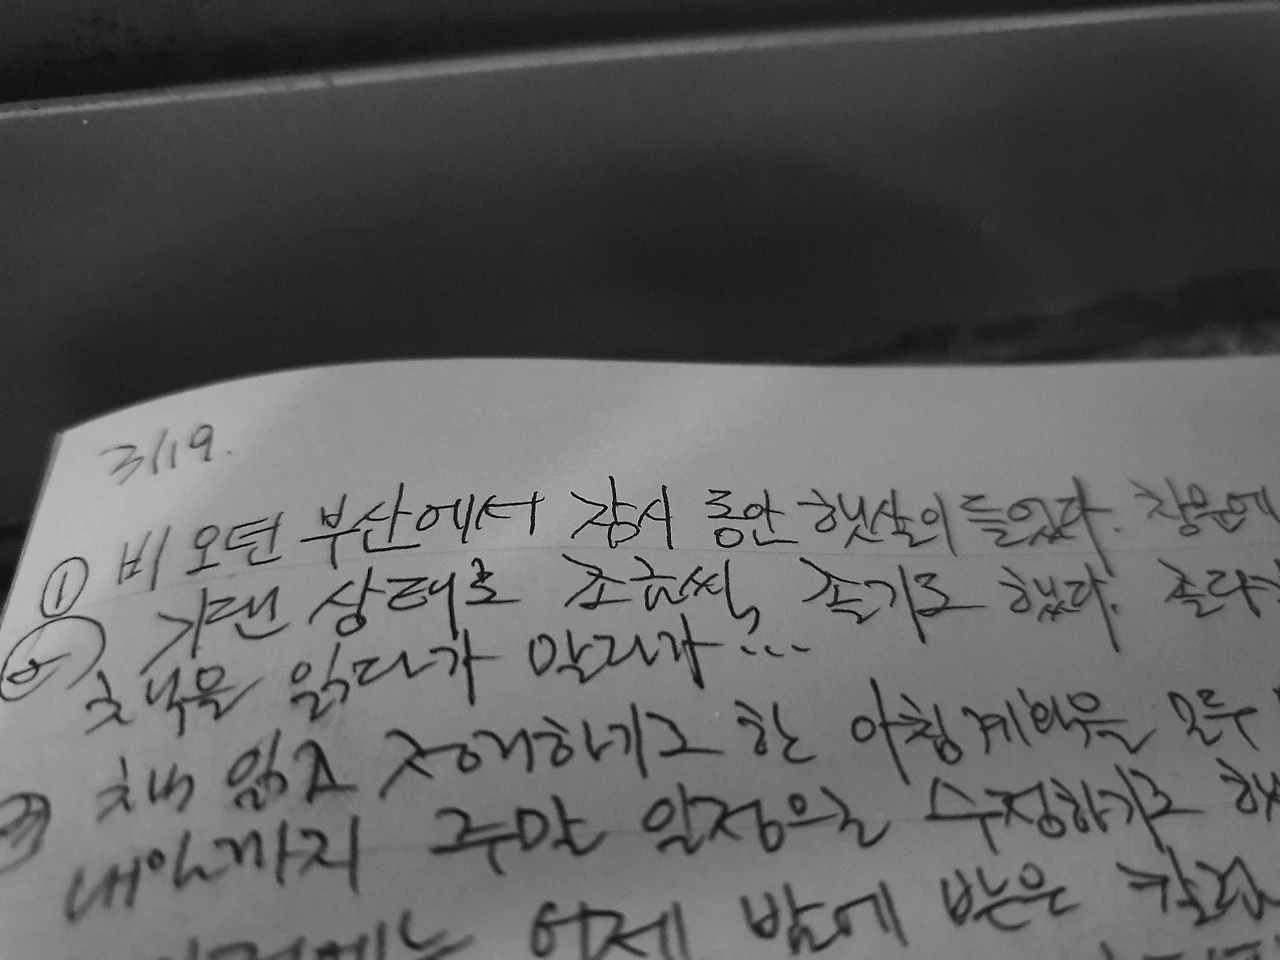 3/19.
① 비 오던 부산에서 잠시 동안 햇살이 들었다. 창문에
기댄 상태로 조금씩, 졸기도 했다. 졸다가
책을 읽다가 말다가...
책 읽고 정리하기로 한 아침 계획을 모두
내일까지 주말 일정을 수정하기로 했
어제 밤에 받은